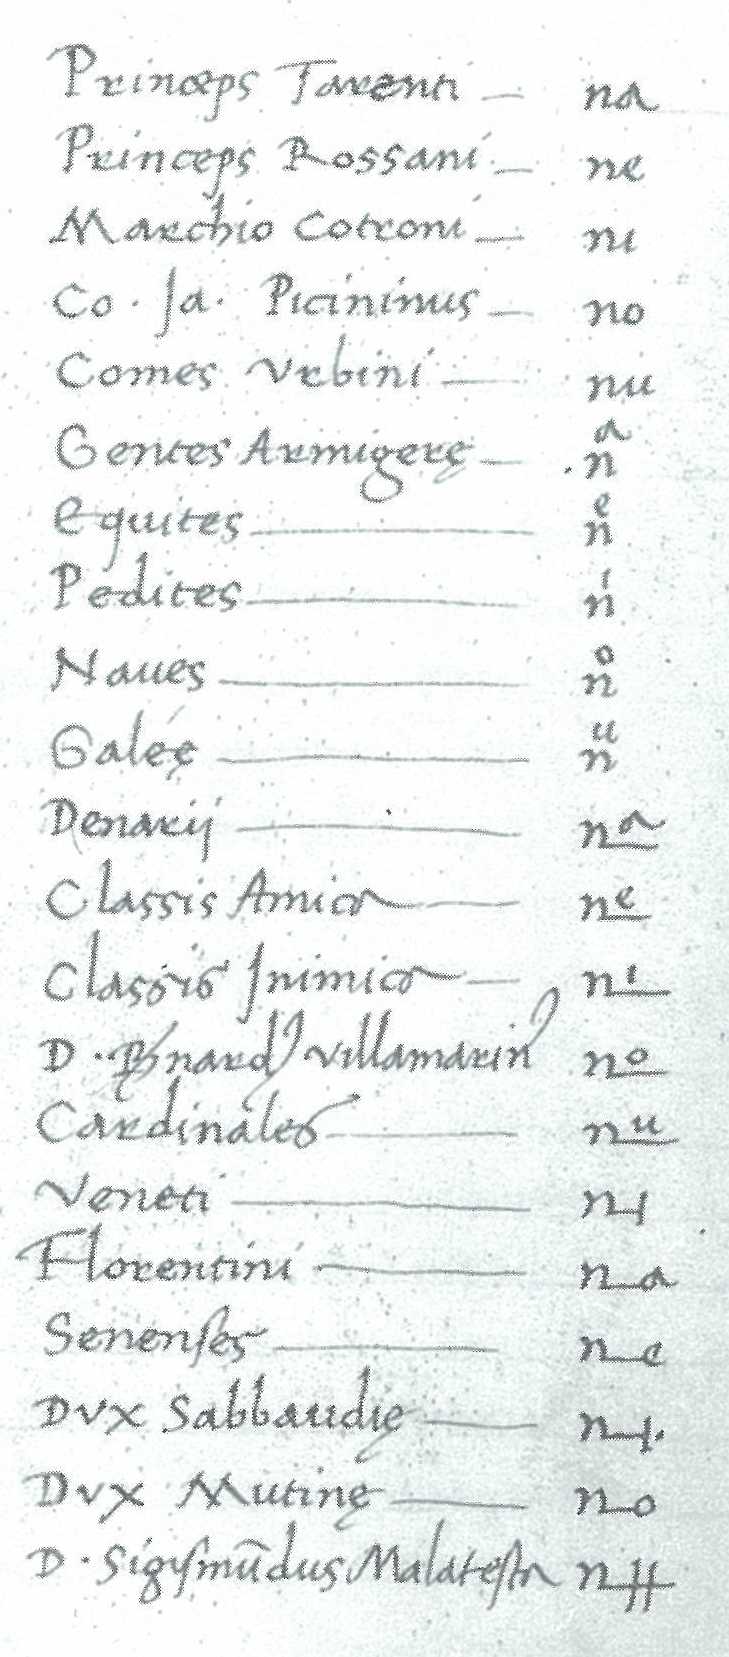 Princeps Tarenti — na
Princeps Rossani — ne
Marchio Cotroni — ni
Co. Ja. Picininus — no
Comes Vrbini — nu
Gentes Armigerę — nᵃ
Equites — nᵉ
Pedites — nⁱ
Naues — nᵒ
Galeę — nᵘ
Denarij — nᵃ
Classis Amica — nᵉ
Classis Inimica — nⁱ
D. Villamarin — nᵒ
Cardinales — nᵘ
Veneti — n
Florentini — n_a
Senenses — n_e
Dvx Sabbaudię — n
Dvx Mutinę — n_o
D. Sigismūdus Malatesta — n